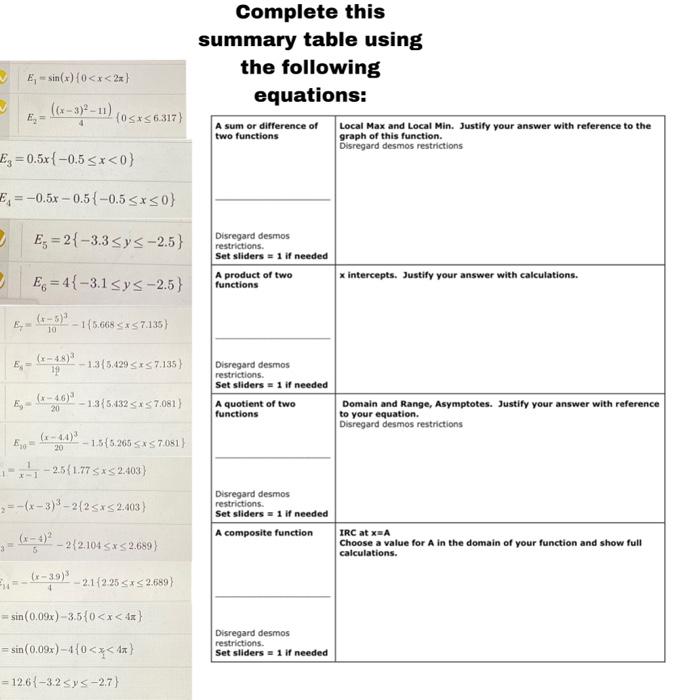 Complete this
summary table using
the following
equations:
E₁ = sin(x){0<x<2π}
E₂ = ((x−3)²−11)/4 {0≤x≤6.317}
E₃ = 0.5x{−0.5≤x<0}
E₄ = −0.5x − 0.5{−0.5≤x≤0}
E₅ = 2{−3.3≤y≤−2.5}
E₆ = 4{−3.1≤y≤−2.5}
E₇ = (x−5)³/10 − 1{5.668≤x≤7.135}
E₈ = (x−4.8)³/19 − 1.3{5.429≤x≤7.135}
E₉ = (x−4.6)³/20 − 1.3{5.432≤x≤7.081}
E₁₀ = (x−4.4)³/20 − 1.5{5.265≤x≤7.081}
₁ = 1/(x−1) − 2.5{1.77≤x≤2.403}
₂ = −(x−3)³ − 2{2≤x≤2.403}
₃ = (x−4)²/5 − 2{2.104≤x≤2.689}
E₁₄ = −(x−3.9)³/4 − 2.1{2.25≤x≤2.689}
= sin(0.09x)−3.5{0<x<4π}
= sin(0.09x)−4{0<x<4π}
= 12.6{−3.2≤y≤−2.7}
A sum or difference of
two functions
Disregard desmos
restrictions.
Set sliders = 1 if needed
Local Max and Local Min. Justify your answer with reference to the
graph of this function.
Disregard desmos restrictions
A product of two
functions
Disregard desmos
restrictions.
Set sliders = 1 if needed
x intercepts. Justify your answer with calculations.
A quotient of two
functions
Disregard desmos
restrictions.
Set sliders = 1 if needed
Domain and Range, Asymptotes. Justify your answer with reference
to your equation.
Disregard desmos restrictions
A composite function
Disregard desmos
restrictions.
Set sliders = 1 if needed
IRC at x=A
Choose a value for A in the domain of your function and show full
calculations.